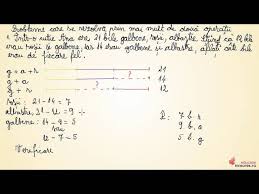 Probleme care se rezolvă prin mai mult de două operații
Într-o cutie sunt 21 bile galbene, roșii, albastre. Știind că 12 bile
erau roșii și galbene, iar 14 erau galbene și albastre, aflați câte bile
erau de fiecare fel.
g + a + r 21
g + a 14
g + r 12
roșii: 21 - 14 = 7 R: 7 b. r
albastre: 21 - 12 = 9 9 b. a
galbene: 14 - 9 = 5 5 b. g
sau
12 - 7 = 5
Verificare